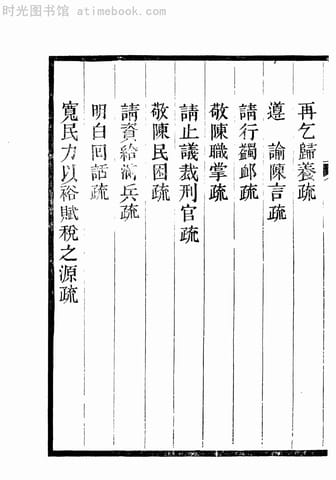 时光图书馆 - atimebook.com
再乞歸養疏
遵　諭陳言疏
請行蠲䘏疏
敬陳職掌疏
請止議裁刑官疏
敬陳民困疏
請資給滿兵疏
明白回話疏
寬民力以裕賦稅之源疏